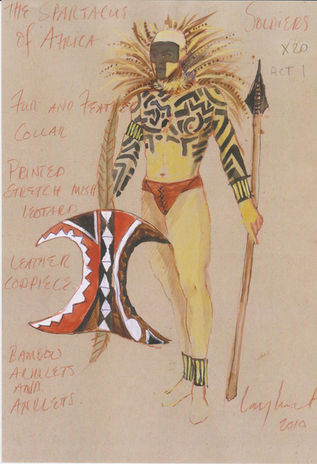 THE SPARTACUS
OF AFRICA
SOLDIERS
X20
ACT 1
FUR AND FEATHER
COLLAR
PRINTED
STRETCH MESH
LEOTARD
LEATHER
CODPIECE
BAMBOO
ARMLETS
AND
ANKLETS.
2010